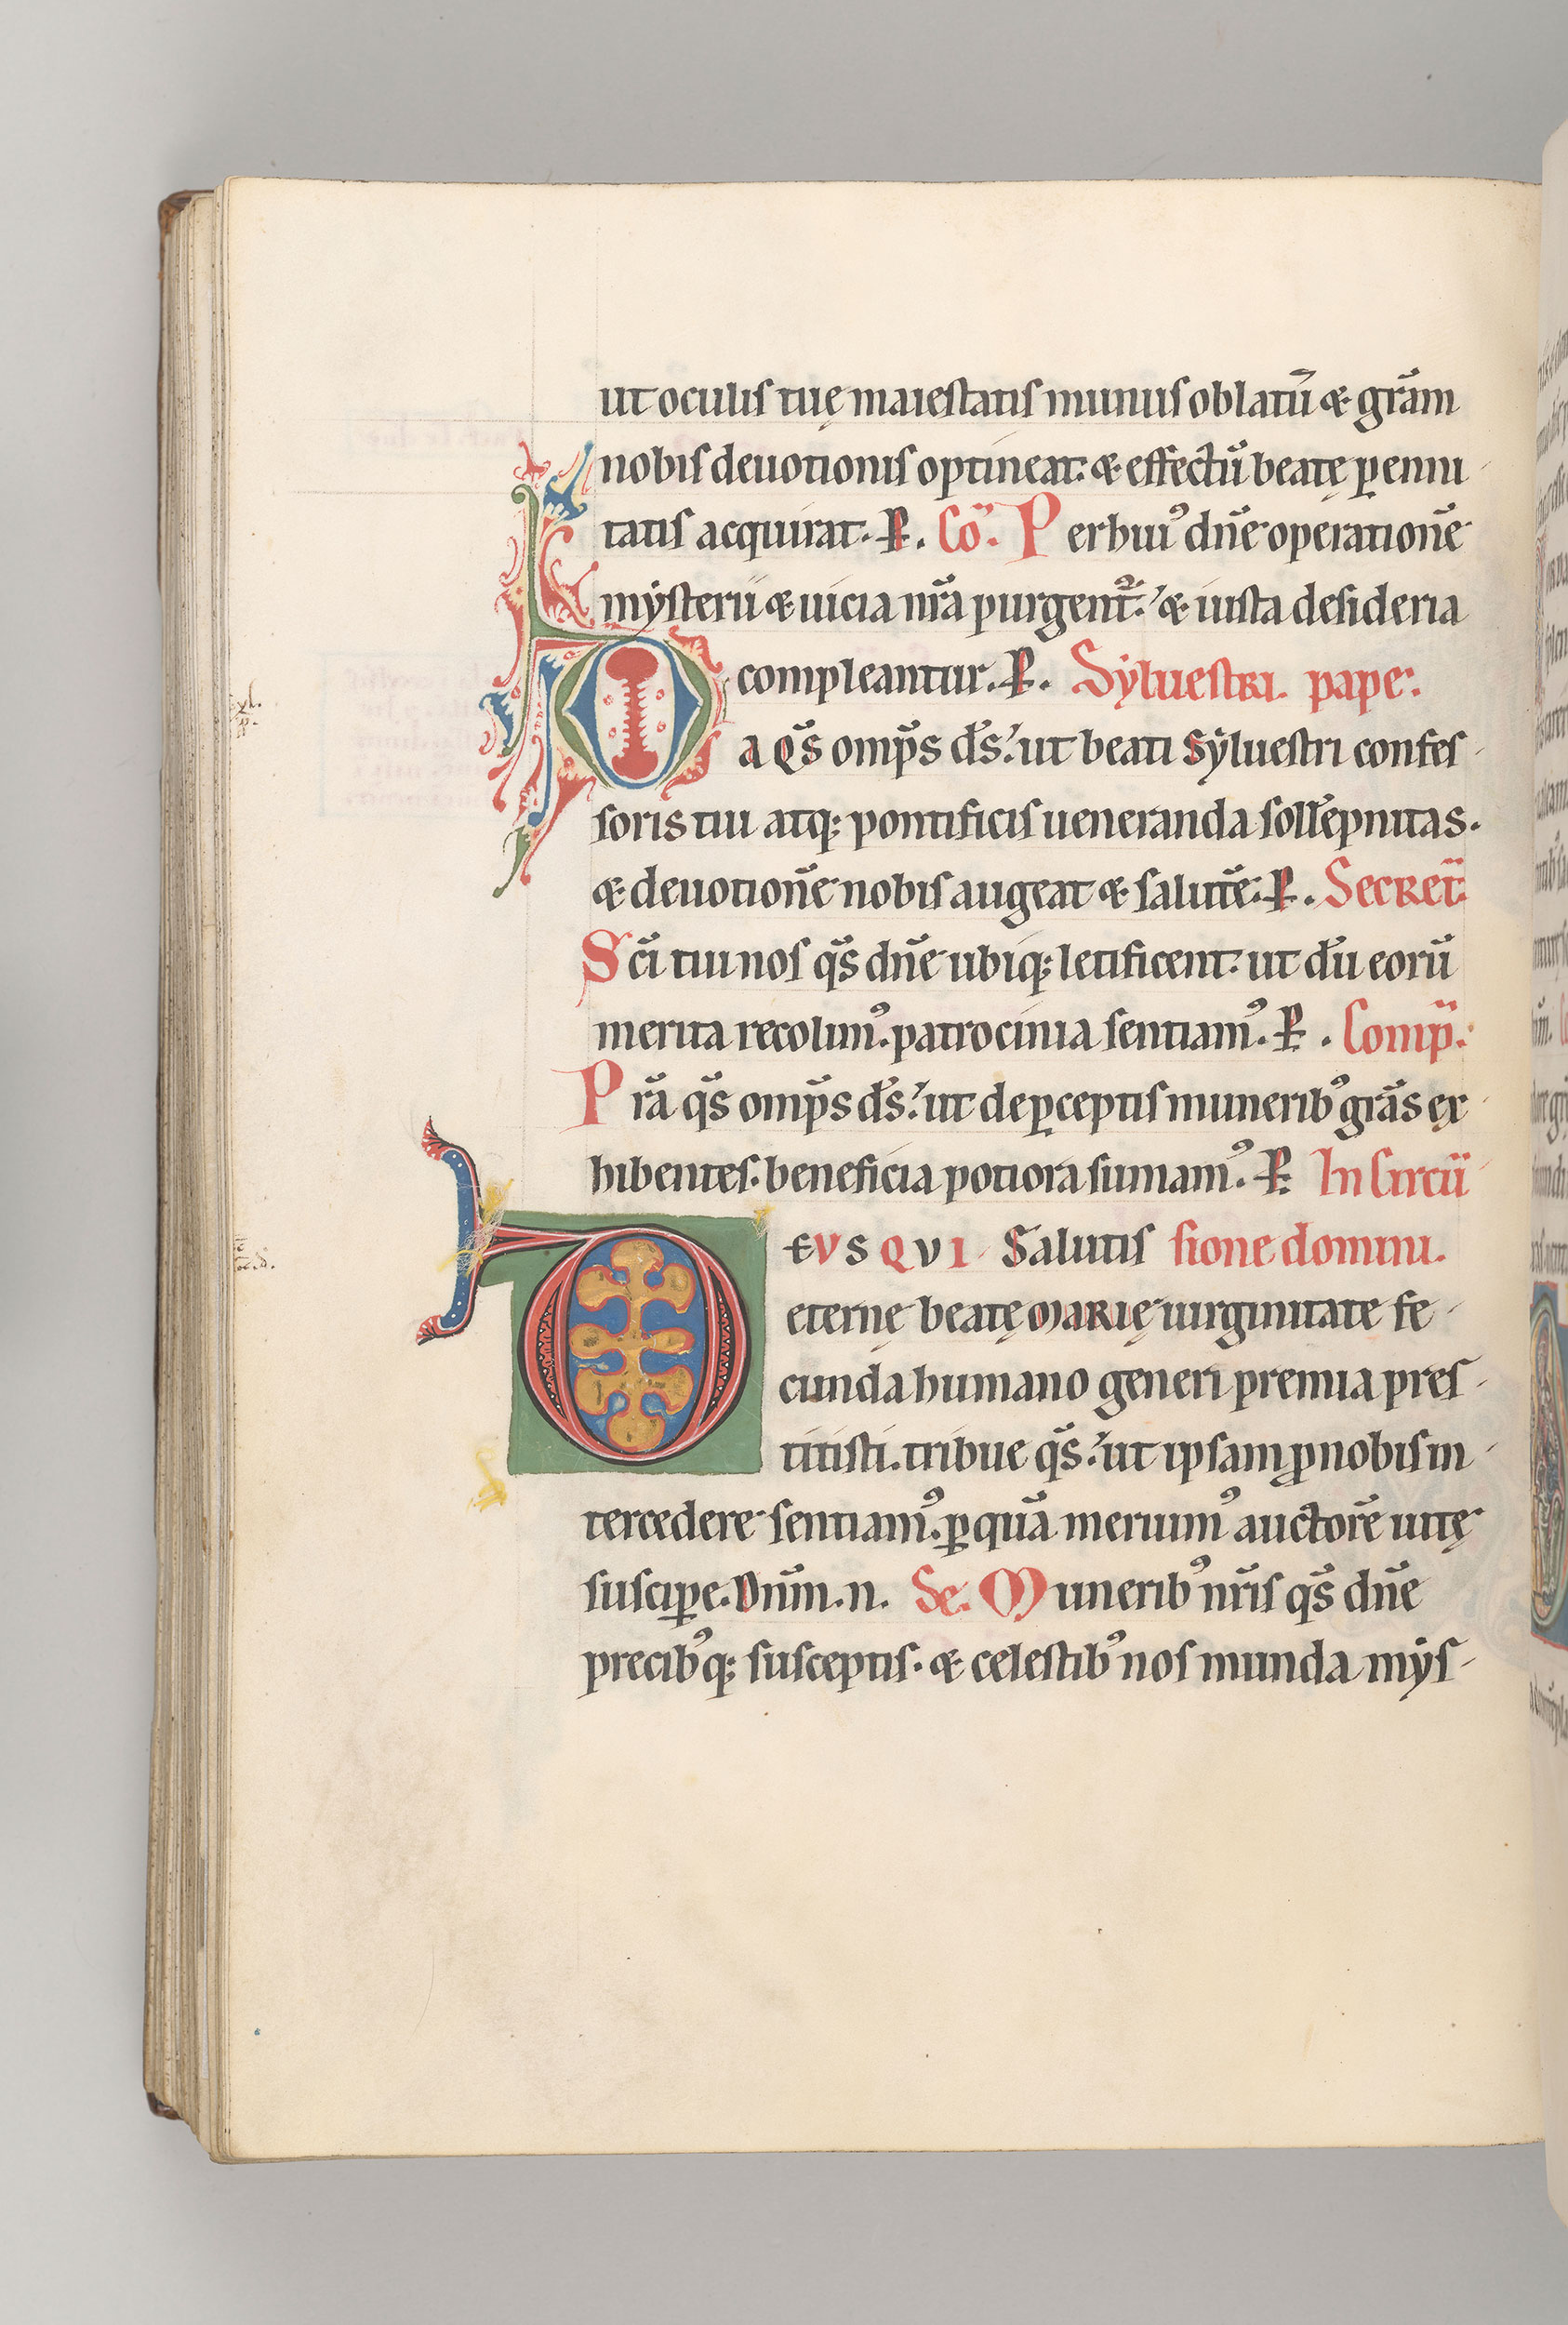 ut oculis tuę maiestatis munus oblatū & grām
nobis deuotionis optineat: & effectū beatę ꝑenni
tatis acquirat. P. Cō. Per hui᷒ dn̄e operationē
mysterii & uicia nr̄a purgent᷑: & iusta desideria
compleantur. P. Syluestri. pape.
Da q̄s omp̄s d̄s: ut beati Syluestri confes
soris tui atq; pontificis ueneranda soll̄epnitas.
& deuotionē nobis augeat & salutē. P. Secret̄
Sc̄i tui nos q̄s dn̄e ubiq; letificent: ut dū eorū
merita recolim᷒. patrocinia sentiam᷒. P. Comp̄.
Pr̄a q̄s omp̄s d̄s: ut de ꝑceptis munerib᷒ grās ex
hibentes. beneficia potiora sumam᷒. P. In Circū
DEVS QVI Salutis sione domini.
eternę beatę MARIę uirginitate fe
cunda humano generi premia pres
titisti. tribue q̄s: ut ipsam ꝓ nobis in
tercedere sentiam᷒. ꝑ quā meruim᷒ auctorē uitę
susciꝑe. Dnm̄. n. Se. Munerib᷒ nr̄is q̄s dn̄e
precib᷒q; susceptis. & celestib᷒ nos munda mys